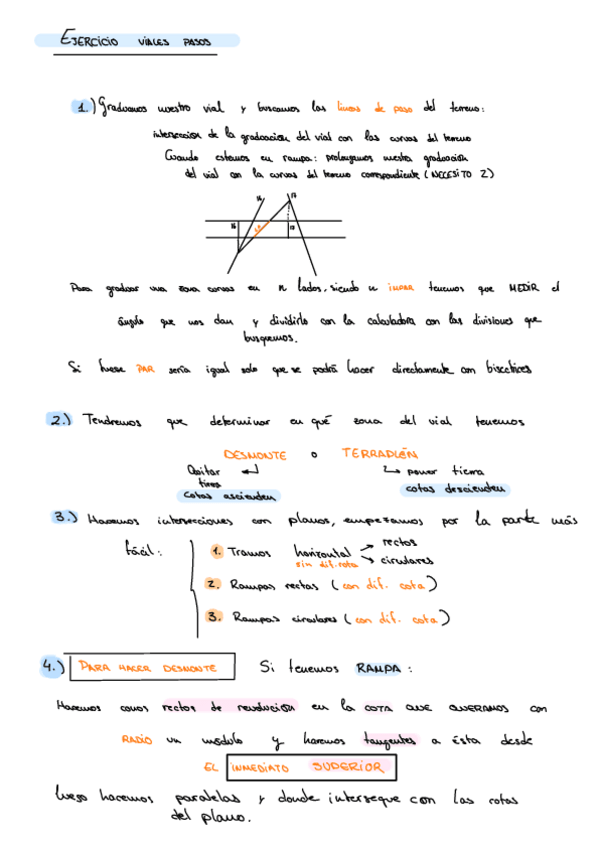 EJERCICIO VIALES PASOS
1.) Graduamos nuestro vial y buscamos las lineas de paso del terreno:
intersección de la graduación del vial con las curvas del terreno
Cuando estamos en rampa: prolongamos nuestra graduación
del vial con la curvas del terreno correspondiente (NECESITO 2)
16 17
16 17
Para graduar una zona curvas en n lados, siendo n impar tenemos que MEDIR el
ángulo que nos dan y dividirlo con la calculadora con las divisiones que
busquemos.
Si fuese PAR sería igual solo que se podrá hacer directamente con bisectrices
2.) Tendremos que determinar en qué zona del vial tenemos
DESMONTE o TERRAPLÉN
Quitar poner tierra
tierra cotas descienden
cotas ascienden
3.) Hacemos intersecciones con planos, empezamos por la parte más
fácil: 1. Tramos horizontal rectos
sin dif. cota circulares
2. Rampas rectas (con dif. cota)
3. Rampas circulares (con dif. cota)
4.) PARA HACER DESMONTE Si tenemos RAMPA:
Hacemos conos rectos de revolución en la COTA QUE QUERAMOS con
RADIO un módulo y haremos tangentes a ésta desde
EL INMEDIATO SUPERIOR
luego hacemos paralelas y donde interseque con las cotas
del plano.